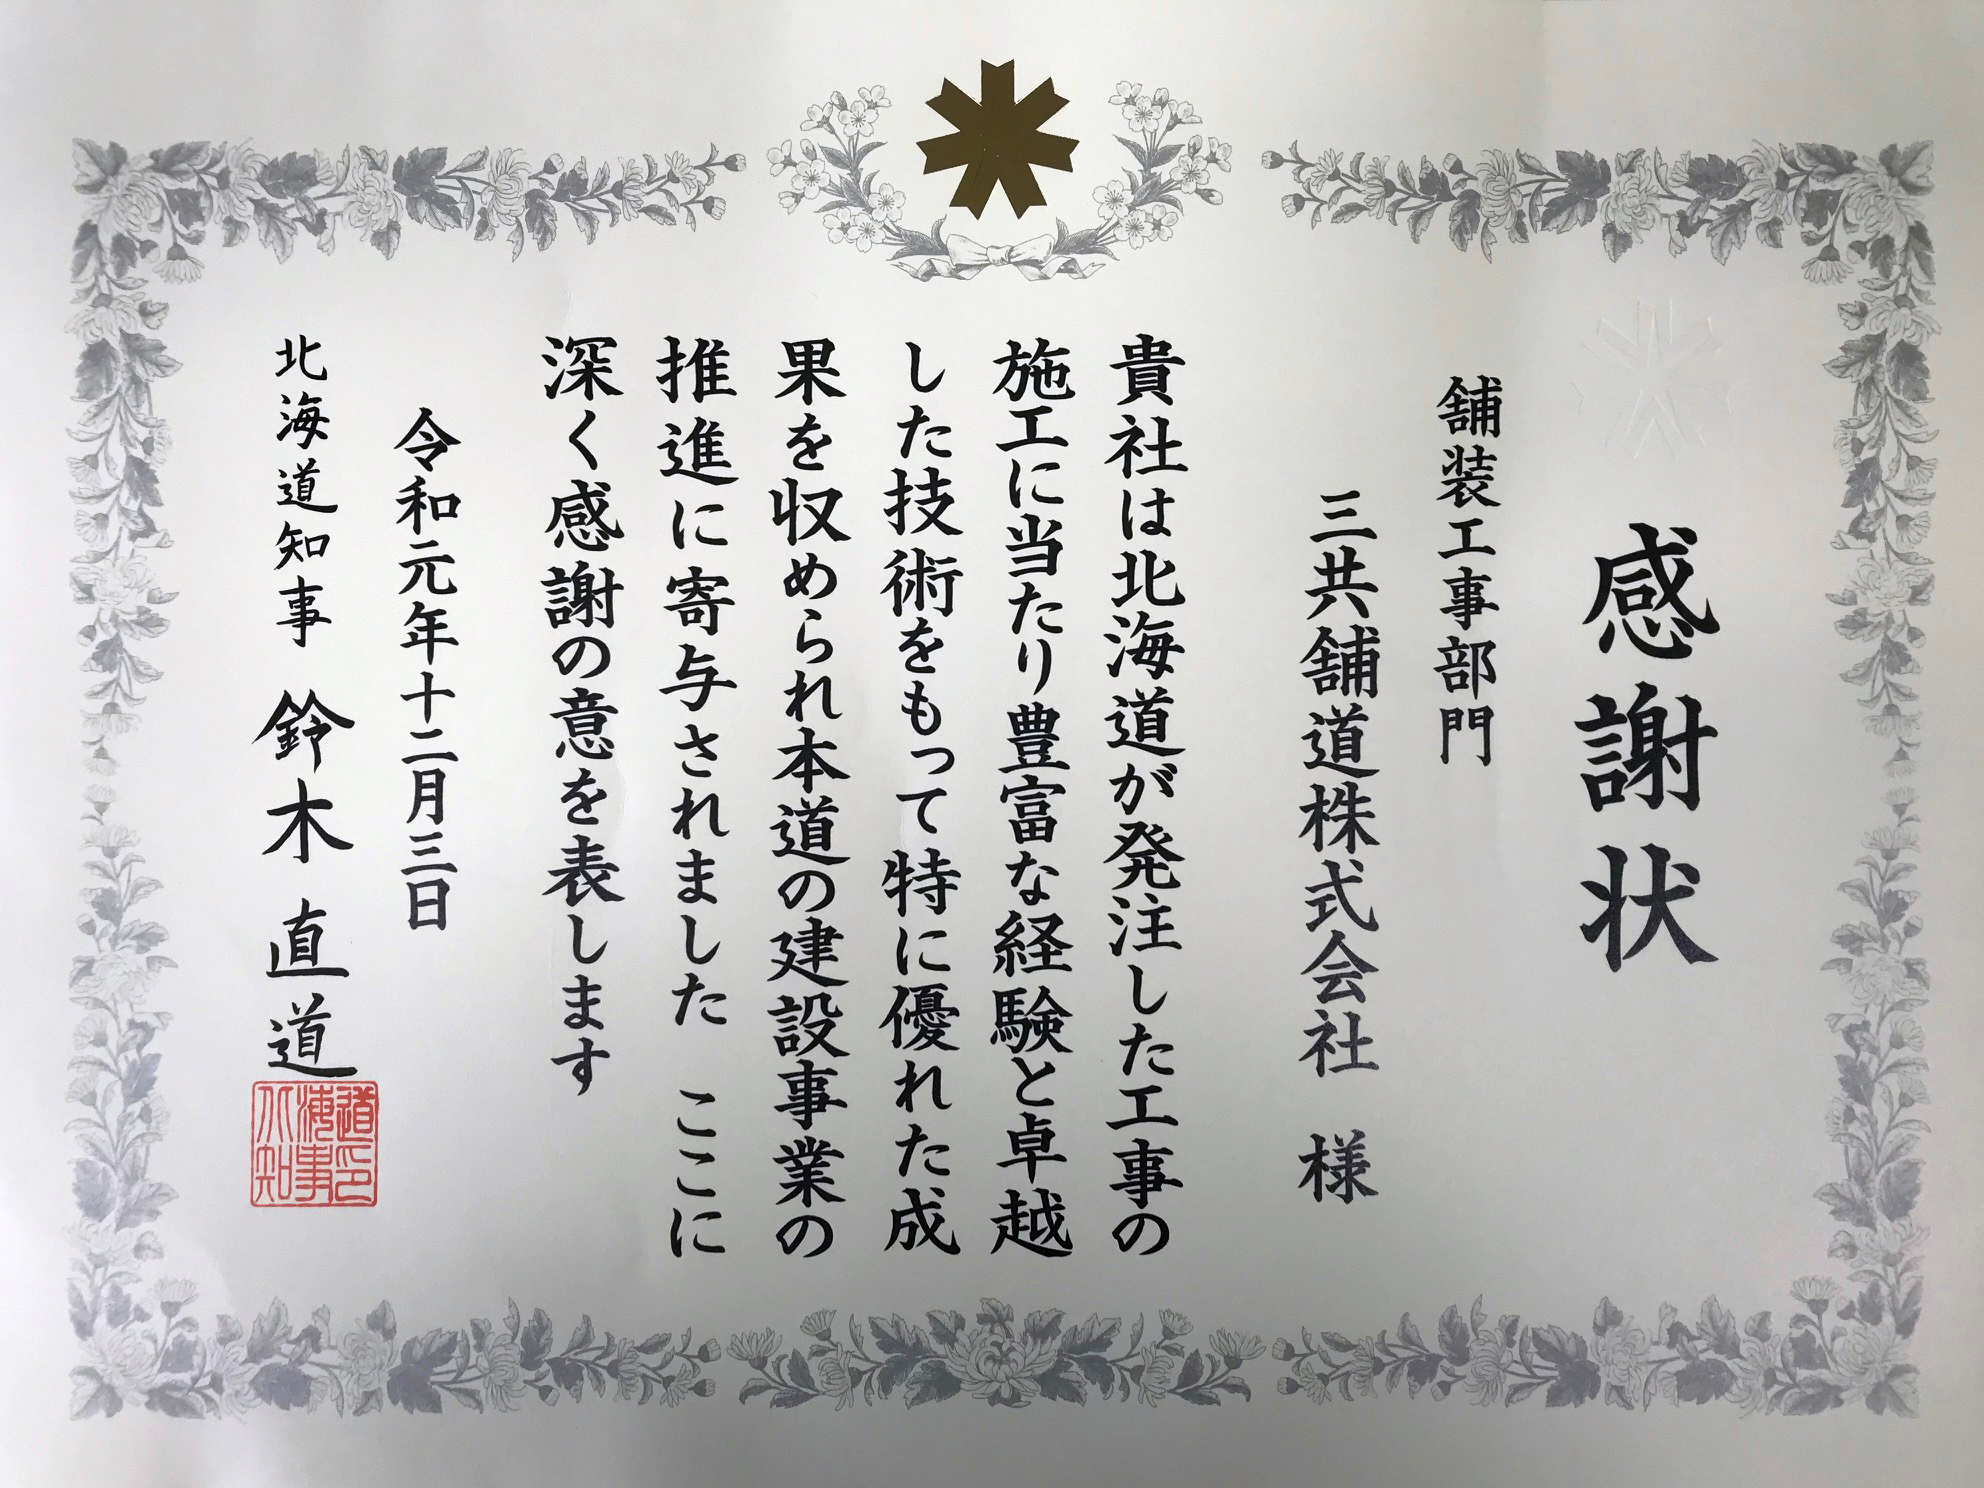 感謝状
舗装工事部門
三共舗道株式会社 様
貴社は北海道が発注した工事の
施工に当たり豊富な経験と卓越
した技術をもって特に優れた成
果を収められ本道の建設事業の
推進に寄与されました ここに
深く感謝の意を表します
令和元年十二月三日
北海道知事 鈴木直道
道海北
印事知